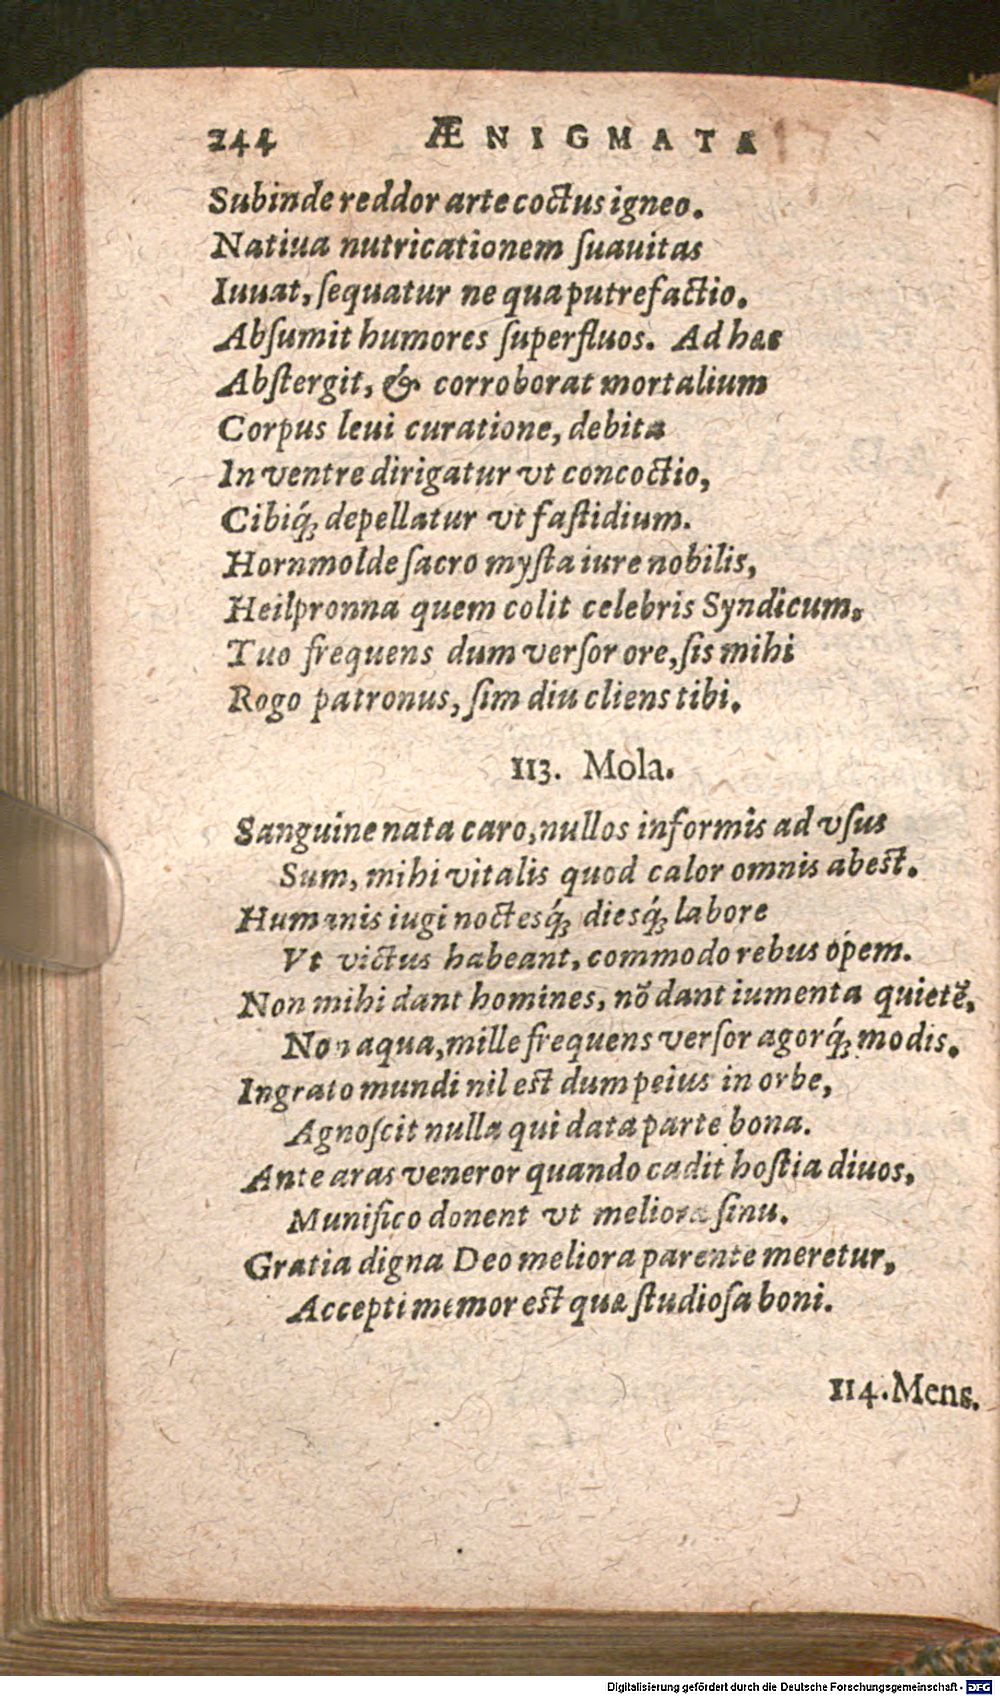 244 ÆNIGMATA
Subinde reddor arte coctus igneo.
Natiua nutricationem ſuauitas
Iuuat, ſequatur ne qua putrefactio.
Abſumit humores ſuperfluos. Ad hæc
Abſtergit, & corroborat mortalium
Corpus leui curatione, debita
In ventre dirigatur vt concoctio,
Cibiq́; depellatur vt faſtidium.
Hornmolde ſacro myſta iure nobilis,
Heilpronna quem colit celebris Syndicum,
Tuo frequens dum verſor ore, ſis mihi
Rogo patronus, ſim diu cliens tibi.
113. Mola.
Sanguine nata caro, nullos informis ad vſus
Sum, mihi vitalis quod calor omnis abest.
Humanis iugi noctesq́; diesq́; labore
Vt victus habeant, commodo rebus opem.
Non mihi dant homines, nō dant iumenta quietē,
Non aqua, mille frequens verſor agorq́; modis.
Ingrato mundi nil est dum peius in orbe,
Agnoſcit nulla qui data parte bona.
Ante aras veneror quando cadit hoſtia diuos,
Munifico donent vt meliora ſinu.
Gratia digna Deo meliora parente meretur,
Accepti memor est quæ ſtudioſa boni.
114. Mens.
Digitalisierung gefördert durch die Deutsche Forschungsgemeinschaft - DFG